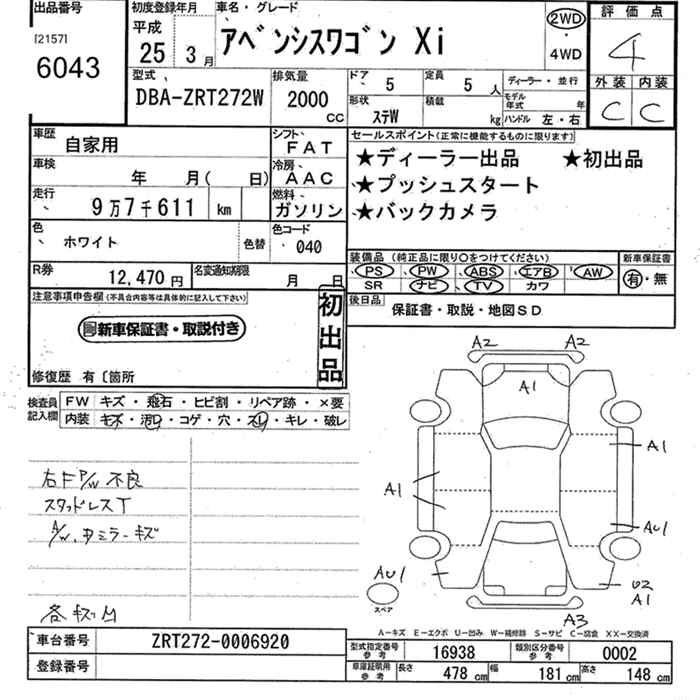 出品番号
[2157]
6043
初度登録年月
平成
25 3月
車名・グレード
ｱﾍﾞﾝｼｽﾜｺﾞﾝ Xi
2WD
・
4WD
評価点
4
外装 内装
C C
型式
DBA-ZRT272W
排気量
2000
CC
ドア
5
定員
5 人
形状
ｽﾃW
積載
kg
ディーラー・並行
モデル年式 年
ハンドル 左・右
車歴
自家用
シフト
FAT
車検
年 月( 日)
冷房
AAC
走行
9万7千611 km
燃料
ガソリン
色
ホワイト
色替
色コード
040
R券
12,470 円
名変通知期限
月 日
セールスポイント(正常に機能するものに限ります)
★ディーラー出品 ★初出品
★プッシュスタート
★バックカメラ
装備品 (純正品に限り○をつけてください)
PS PW ABS エアB AW
SR ナビ TV カワ
新車保証書
有・無
後日品
保証書・取説・地図SD
注意事項申告欄(不具合内容等は具体的に記入して下さい)
新車保証書・取説付き
初出品
修復歴 有〔箇所
検査員記入欄
FW キズ・飛石・ヒビ割・リペア跡・×要
内装 キズ・汚れ・コゲ・穴・スレ・キレ・破レ
右F P/W 不良
スタッドレスT
A/W. 中ミラーキズ
各キズ凹
A2 A2
A1
A1
A1
AU1
AU1
スペア
U2
A1
A3
A－キズ E－エクボ U－凹み W－補修跡 S－サビ C－腐食 XX－交換済
車台番号
ZRT272-0006920
登録番号
型式指定番号
参考
16938
類別区分番号
参考
0002
車庫証明用
参考
長さ 478 cm
幅 181 cm
高さ 148 cm